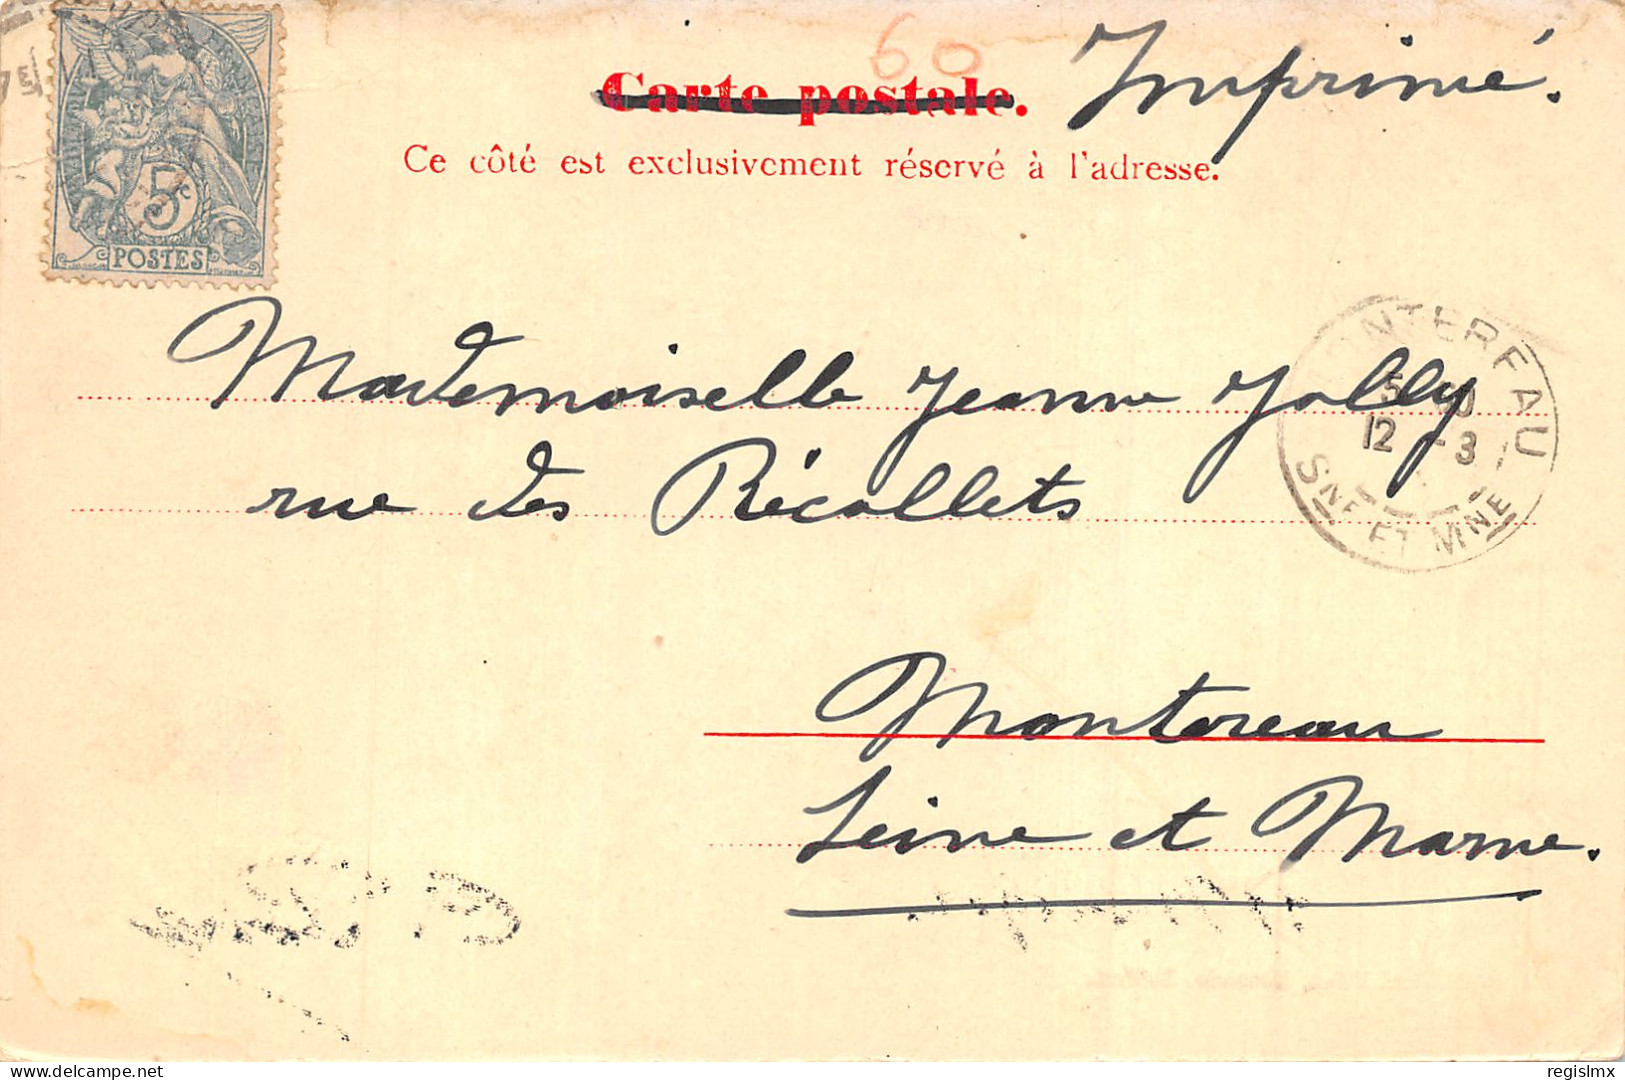 60
Carte postale. Imprimé.
Ce côté est exclusivement réservé à l'adresse.
5c
POSTES
Mademoiselle Jeanne Jolly
rue des Récollets
NTEREAU
12 -3
SNE ET MNE
Montereau
Seine et Marne.
delcampe.net
regislmx